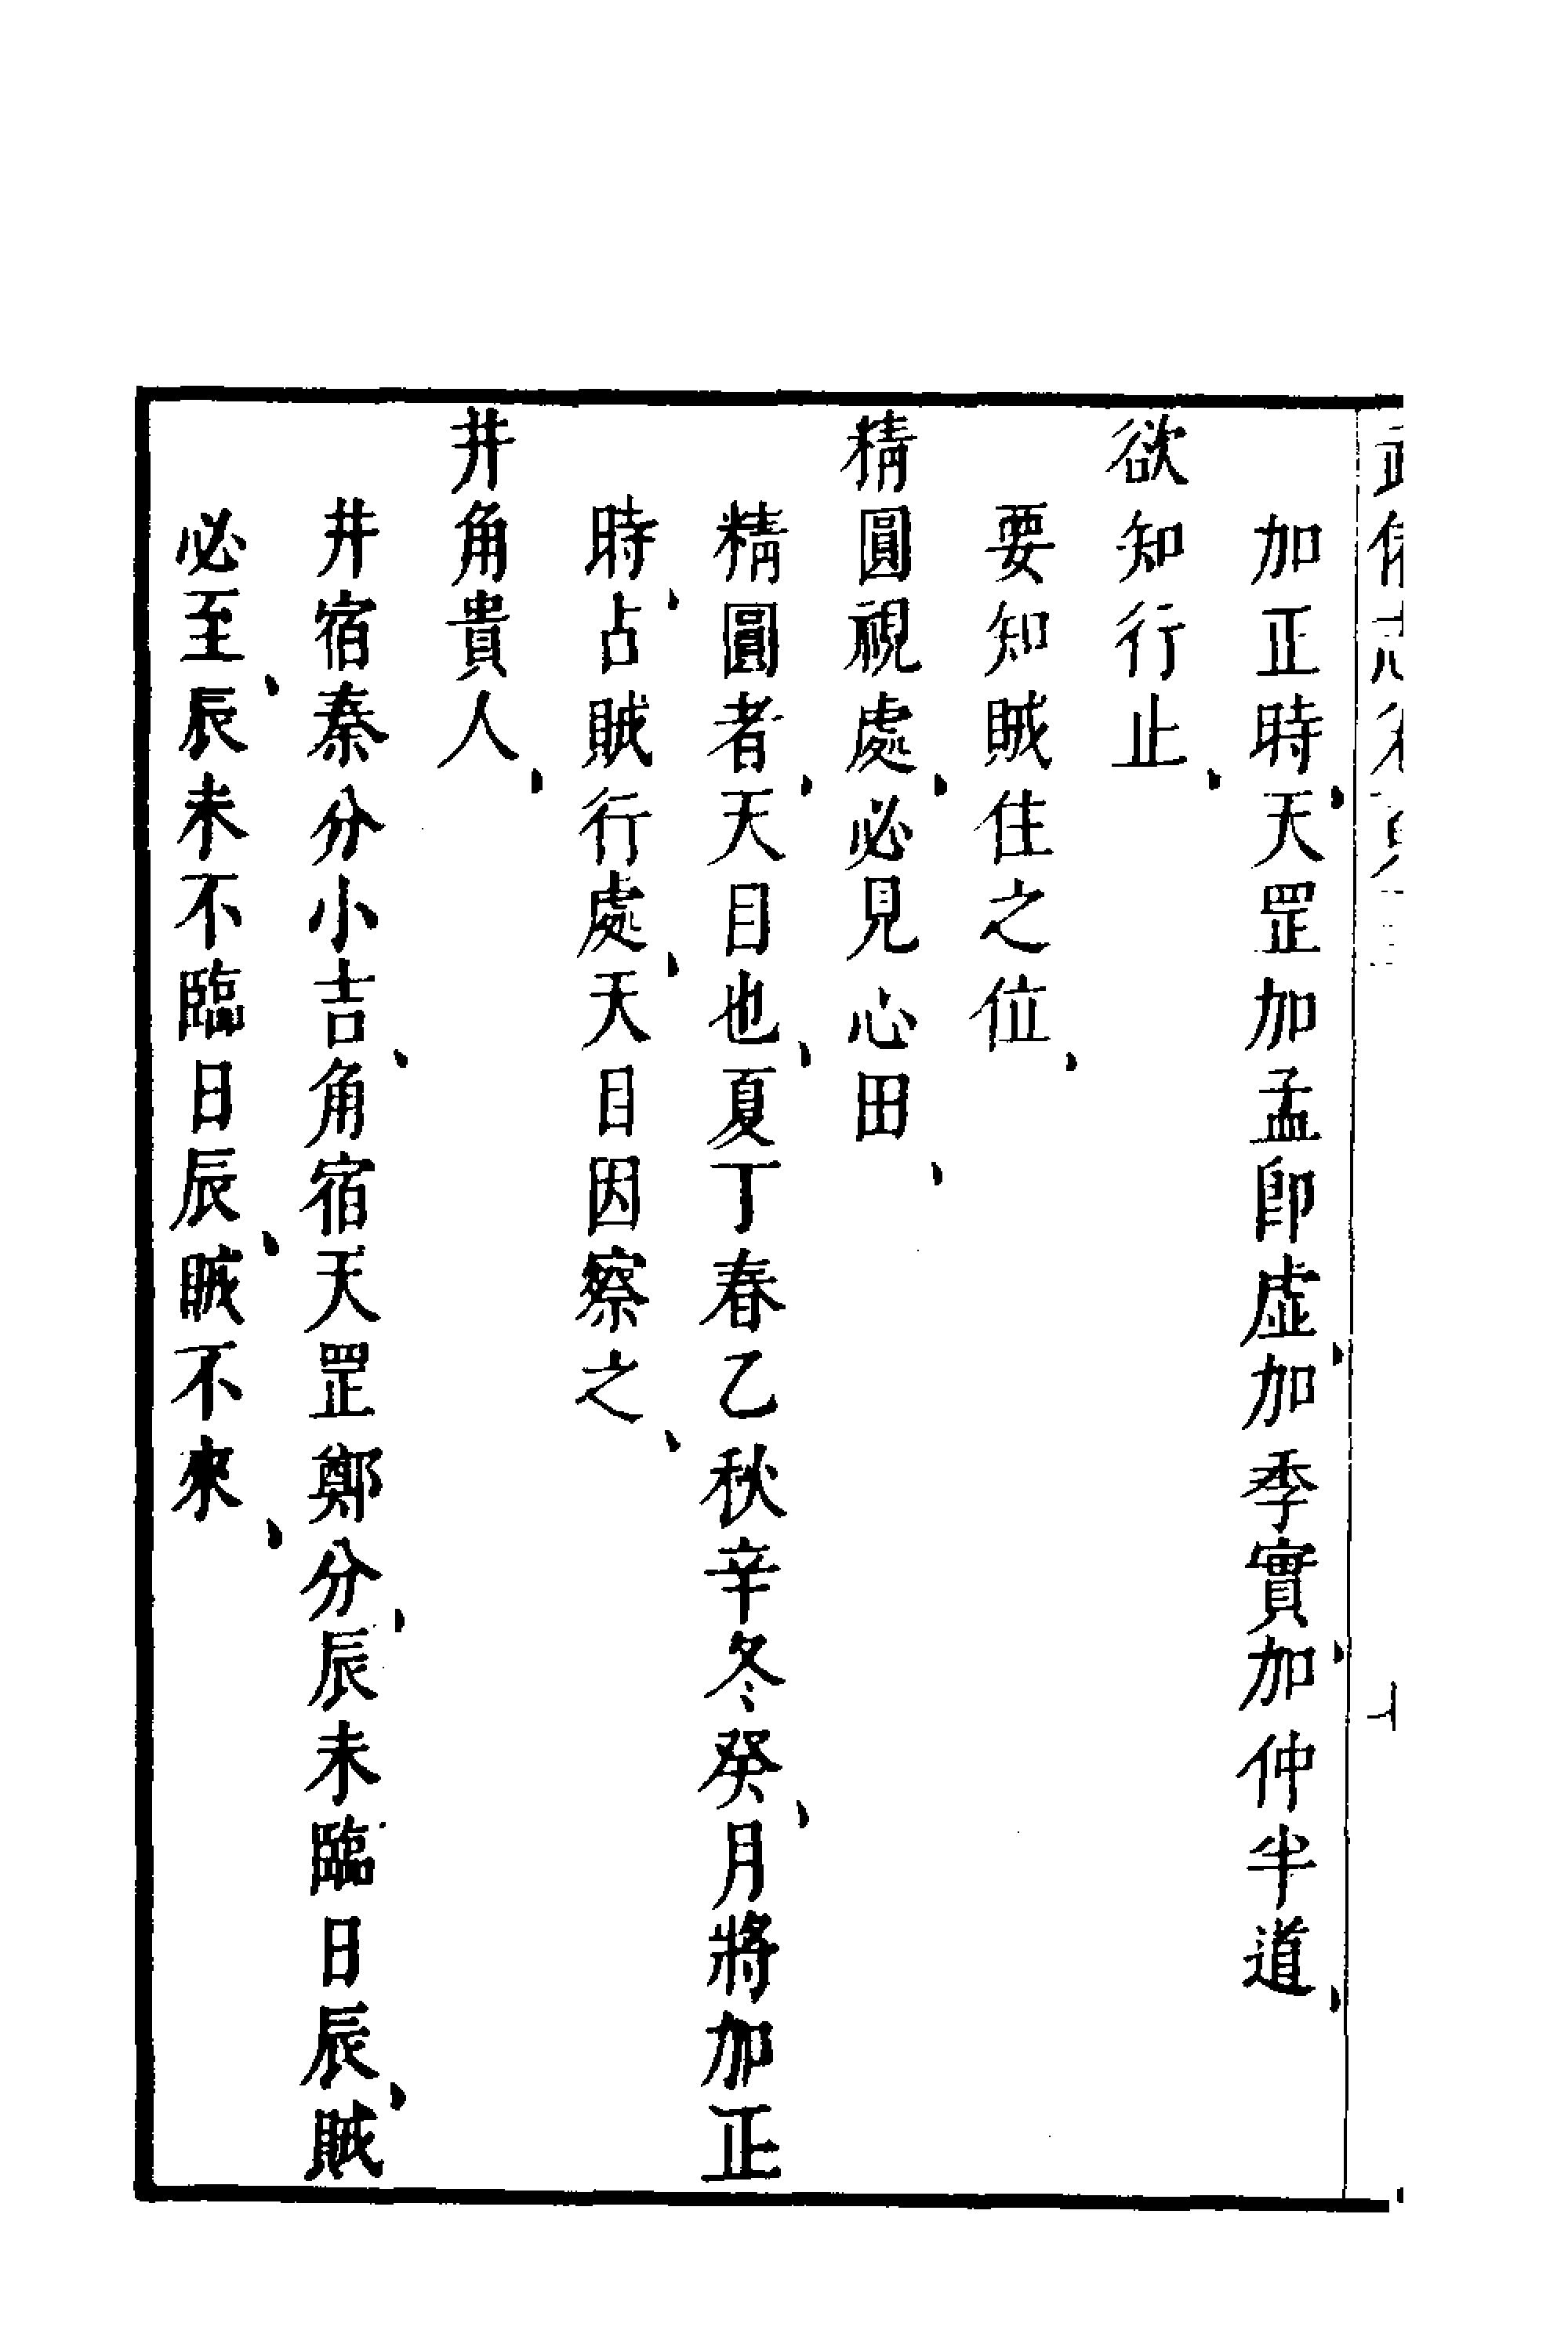 加正時、天罡加孟卽虛、加季實、加仲半道、
欲知行止、
要知賊住之位、
精圓視處、必見心田、
精圓者、天目也、夏丁春乙秋辛冬癸、月將加正
時、占賊行處、天目因察之、
井角貴人、
井宿秦分小吉、角宿天罡鄭分、辰未臨日辰、賊
必至、辰未不臨日辰、賊不來、